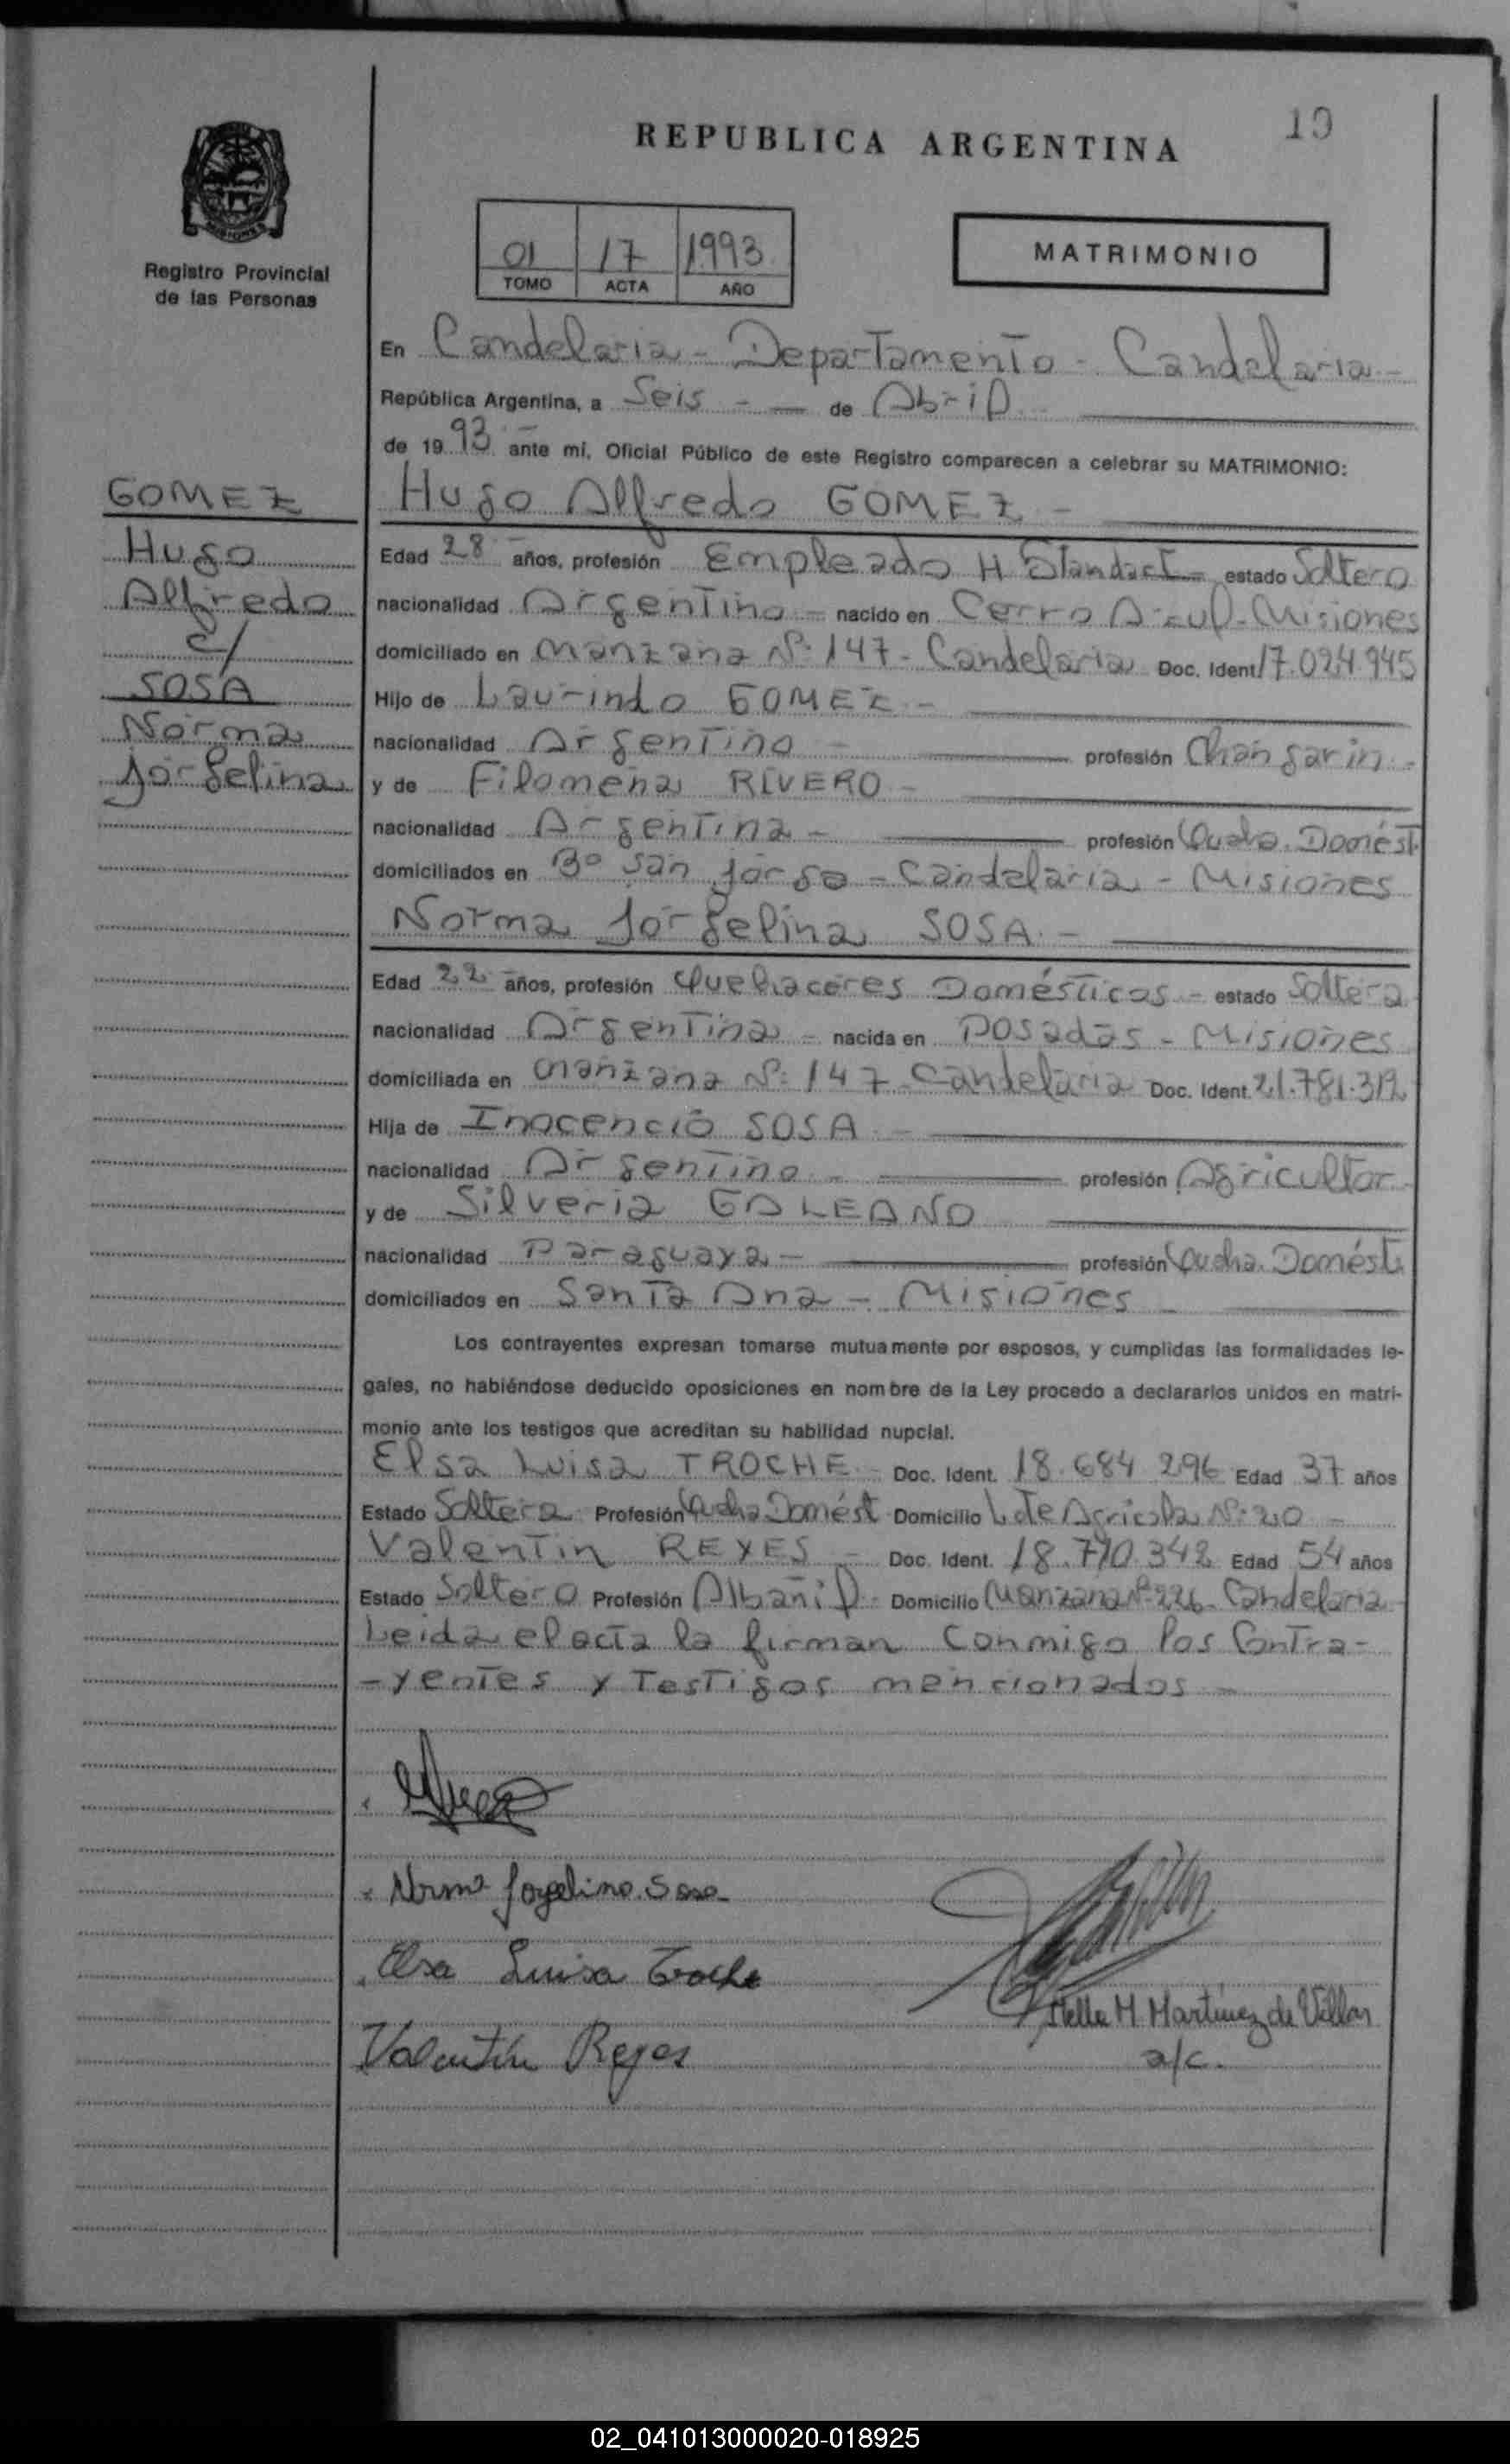 19
REPUBLICA ARGENTINA
MISIONES
Registro Provincial
de las Personas
01 17 1993
TOMO ACTA AÑO
MATRIMONIO
En Candelaria - Departamento - Candelaria -
República Argentina, a Seis - - de Abril
de 1993 ante mí, Oficial Público de este Registro comparecen a celebrar su MATRIMONIO:
GOMEZ
Hugo
Alfredo
c/
SOSA
Norma
Jorgelina
Hugo Alfredo GOMEZ -
Edad 28 años, profesión Empleado H. Standart - estado Soltero
nacionalidad Argentino - nacido en Cerro Azul - Misiones
domiciliado en Manzana Nº 147 - Candelaria Doc. Ident. 17.024.945
Hijo de Laurindo GOMEZ -
nacionalidad Argentino - profesión Changarin -
y de Filomena RIVERO -
nacionalidad Argentina - profesión Qucha. Domést.
domiciliados en Bº San Jorge - Candelaria - Misiones
Norma Jorgelina SOSA -
Edad 22 años, profesión Quehaceres Domésticos - estado Soltera
nacionalidad Argentina - nacida en Posadas - Misiones
domiciliada en Manzana Nº 147 - Candelaria Doc. Ident. 21.781.312
Hija de Inocencio SOSA -
nacionalidad Argentino - profesión Agricultor
y de Silveria GALEANO
nacionalidad Paraguaya - profesión Qucha. Domést.
domiciliados en Santa Ana - Misiones
Los contrayentes expresan tomarse mutuamente por esposos, y cumplidas las formalidades le-
gales, no habiéndose deducido oposiciones en nombre de la Ley procedo a declararlos unidos en matri-
monio ante los testigos que acreditan su habilidad nupcial.
Elsa Luisa TROCHE - Doc. Ident. 18.684.296 Edad 37 años
Estado Soltera Profesión Qucha Domést Domicilio Lote Agricola Nº 20 -
Valentin REYES - Doc. Ident. 18.710.342 Edad 54 años
Estado Soltero Profesión Albañil - Domicilio Manzana Nº 226 - Candelaria
Leida el acta la firman conmigo los Contra-
-yentes y Testigos mencionados -
Norma Jorgelina Sosa
Elsa Luisa Troche
Valentin Reyes
Stella M Martinez de Villar
a/c.
02_041013000020-018925